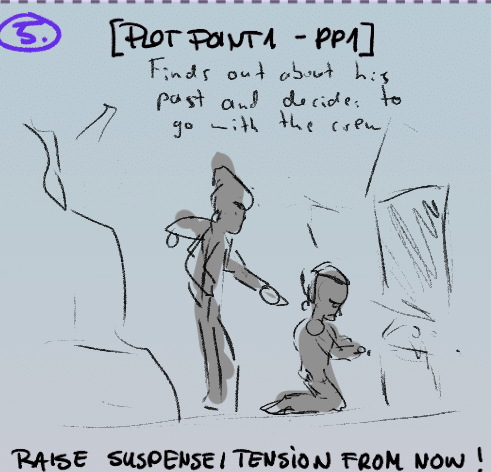 5.
[PLOT POINT 1 - PP1]
Finds out about his
past and decides to
go with the crew
RAISE SUSPENSE/TENSION FROM NOW!